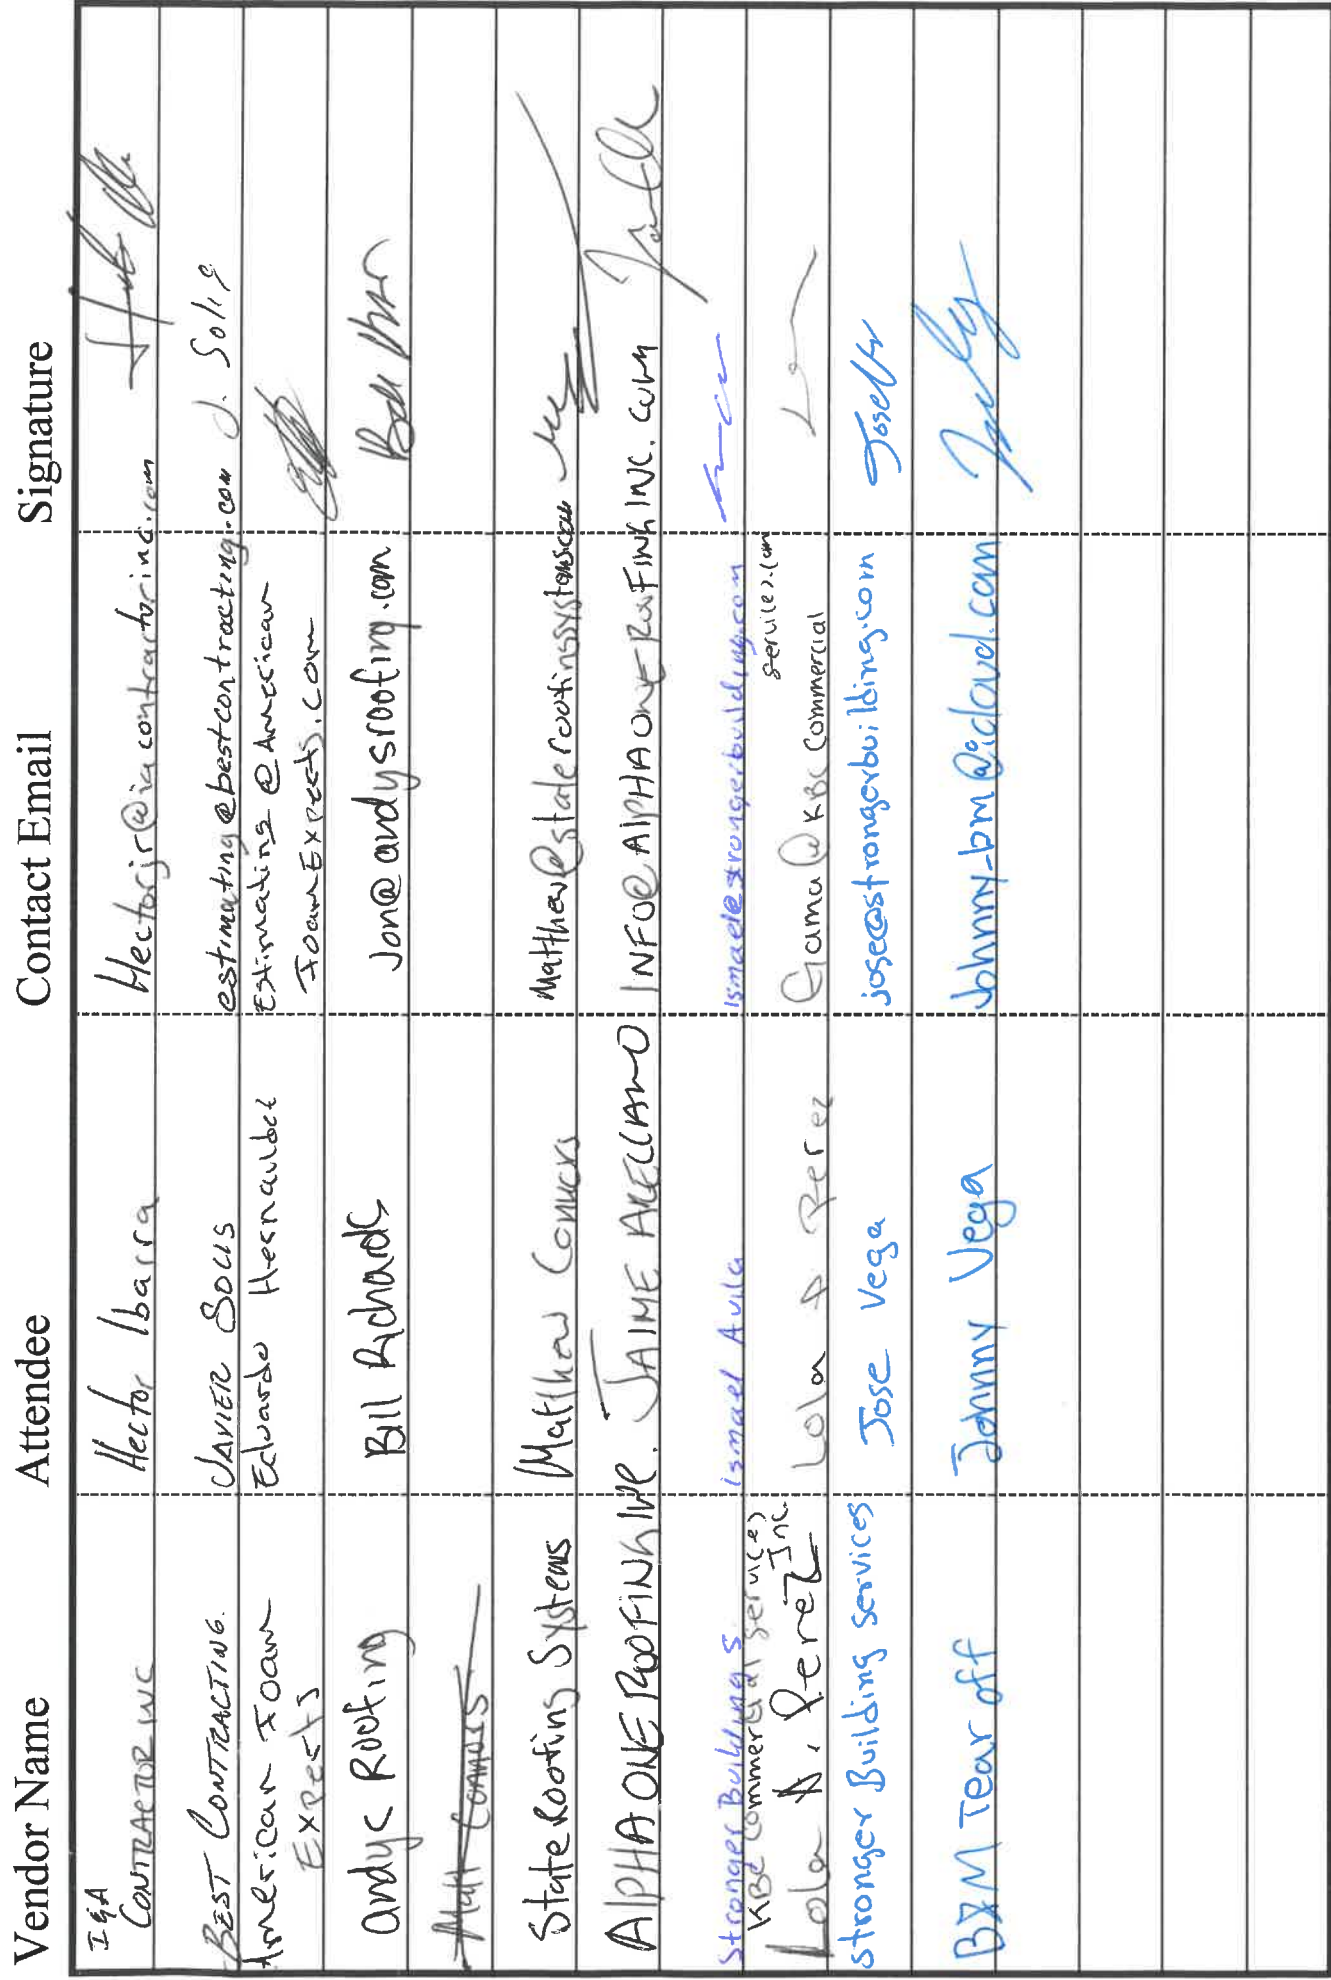 Vendor Name Attendee Contact Email Signature
I&A
CONTRACTOR INC Hector Ibarra Hectorjr@iacontractorinc.com
BEST CONTRACTING. JAVIER SOLIS estimating@bestcontracting.com J. Solis
American Foam Eduardo Hernandez Estimating @ American
Experts FoamExperts.com
andys Roofing Bill Richards Jon@andysroofing.com
Matt Connors
State Roofing Systems Matthew Connors Matthew@stateroofingsystems.com
ALPHA ONE ROOFING INC. JAIME ARELLANO INFO@ALPHAONEROOFINGINC.COM
Stronger Building S. Ismael Avila Ismael@strongerbuilding.com
KBC Commercial Services services.com
Lola A. Perez Inc. Lola A Perez Gamal@KBCCommercial
stronger Building services Jose Vega jose@strongerbuilding.com
B&M Tear off Johnny Vega Johnny-bm@icloud.com